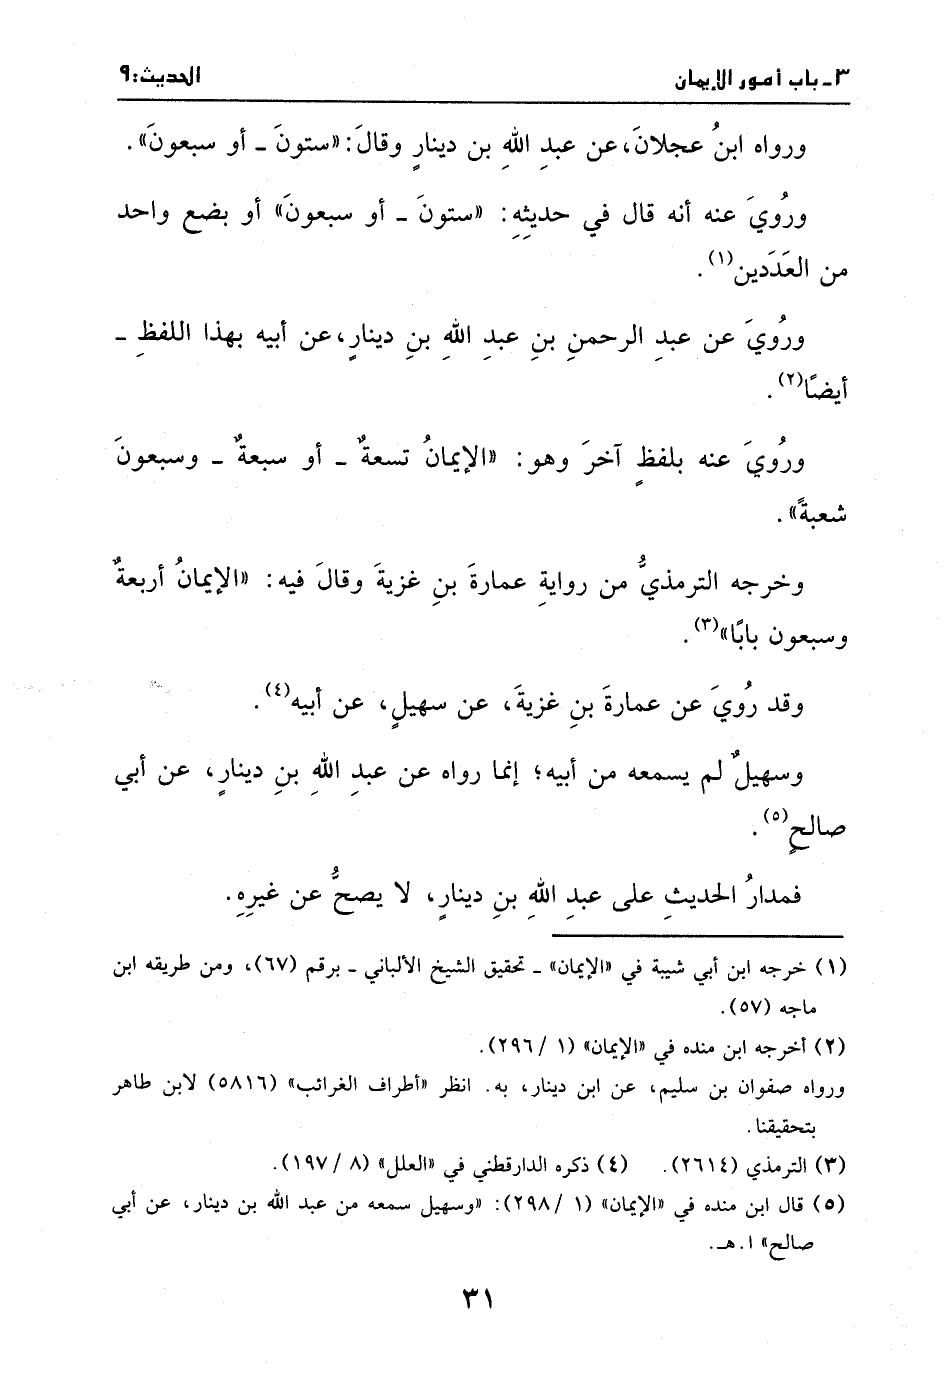 ٣ ـ باب أمور الإيمان الحديث: ٩
ورواه ابنُ عجلانَ، عن عبدِ اللهِ بن دينارٍ وقالَ: «ستونَ ـ أو سبعونَ».
ورُويَ عنه أنه قال في حديثِهِ: «ستونَ ـ أو سبعونَ» أو بضع واحد
من العَدَدين(١).
ورُويَ عن عبدِ الرحمنِ بنِ عبدِ اللهِ بنِ دينارٍ، عن أبيه بهذا اللفظِ ـ
أيضًا(٢).
ورُويَ عنه بلفظٍ آخرَ وهو: «الإيمانُ تسعةٌ ـ أو سبعةٌ ـ وسبعونَ
شعبةً».
وخرجه الترمذيُّ من روايةِ عمارةَ بنِ غزيةَ وقالَ فيه: «الإيمانُ أربعةٌ
وسبعون بابًا»(٣).
وقد رُويَ عن عمارةَ بنِ غزيةَ، عن سهيلٍ، عن أبيه(٤).
وسهيلٌ لم يسمعه من أبيه؛ إنما رواه عن عبدِ اللهِ بنِ دينارٍ، عن أبي
صالحٍ(٥).
فمدارُ الحديثِ على عبدِ اللهِ بنِ دينارٍ، لا يصحُّ عن غيرِهِ.
(١) خرجه ابن أبي شيبة في «الإيمان» ـ تحقيق الشيخ الألباني ـ برقم (٦٧)، ومن طريقه ابن
ماجه (٥٧).
(٢) أخرجه ابن منده في «الإيمان» (١ / ٢٩٦).
ورواه صفوان بن سليم، عن ابن دينار، به. انظر «أطراف الغرائب» (٥٨١٦) لابن طاهر
بتحقيقنا.
(٣) الترمذي (٢٦١٤). (٤) ذكره الدارقطني في «العلل» (٨ / ١٩٧).
(٥) قال ابن منده في «الإيمان» (١ / ٢٩٨): «وسهيل سمعه من عبد الله بن دينار، عن أبي
صالح» ا. هـ.
٣١